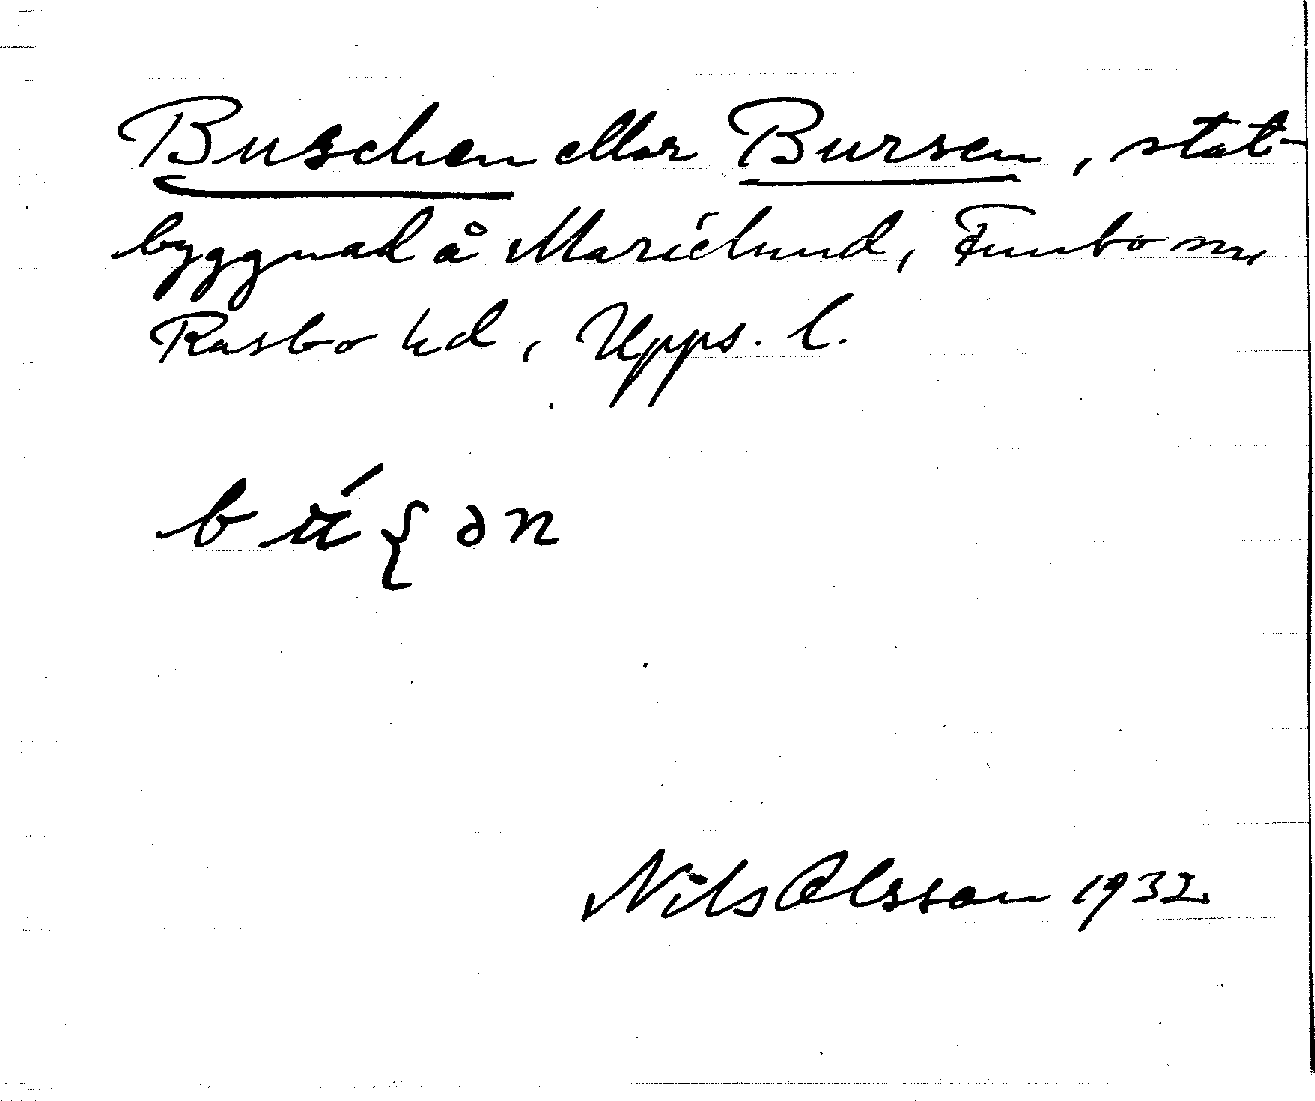 Buschen eller Bursen, stat-
byggnad å Marielund, Funbo sn,
Rasbo hd, Upps. l.
Nils Olsson 1932.